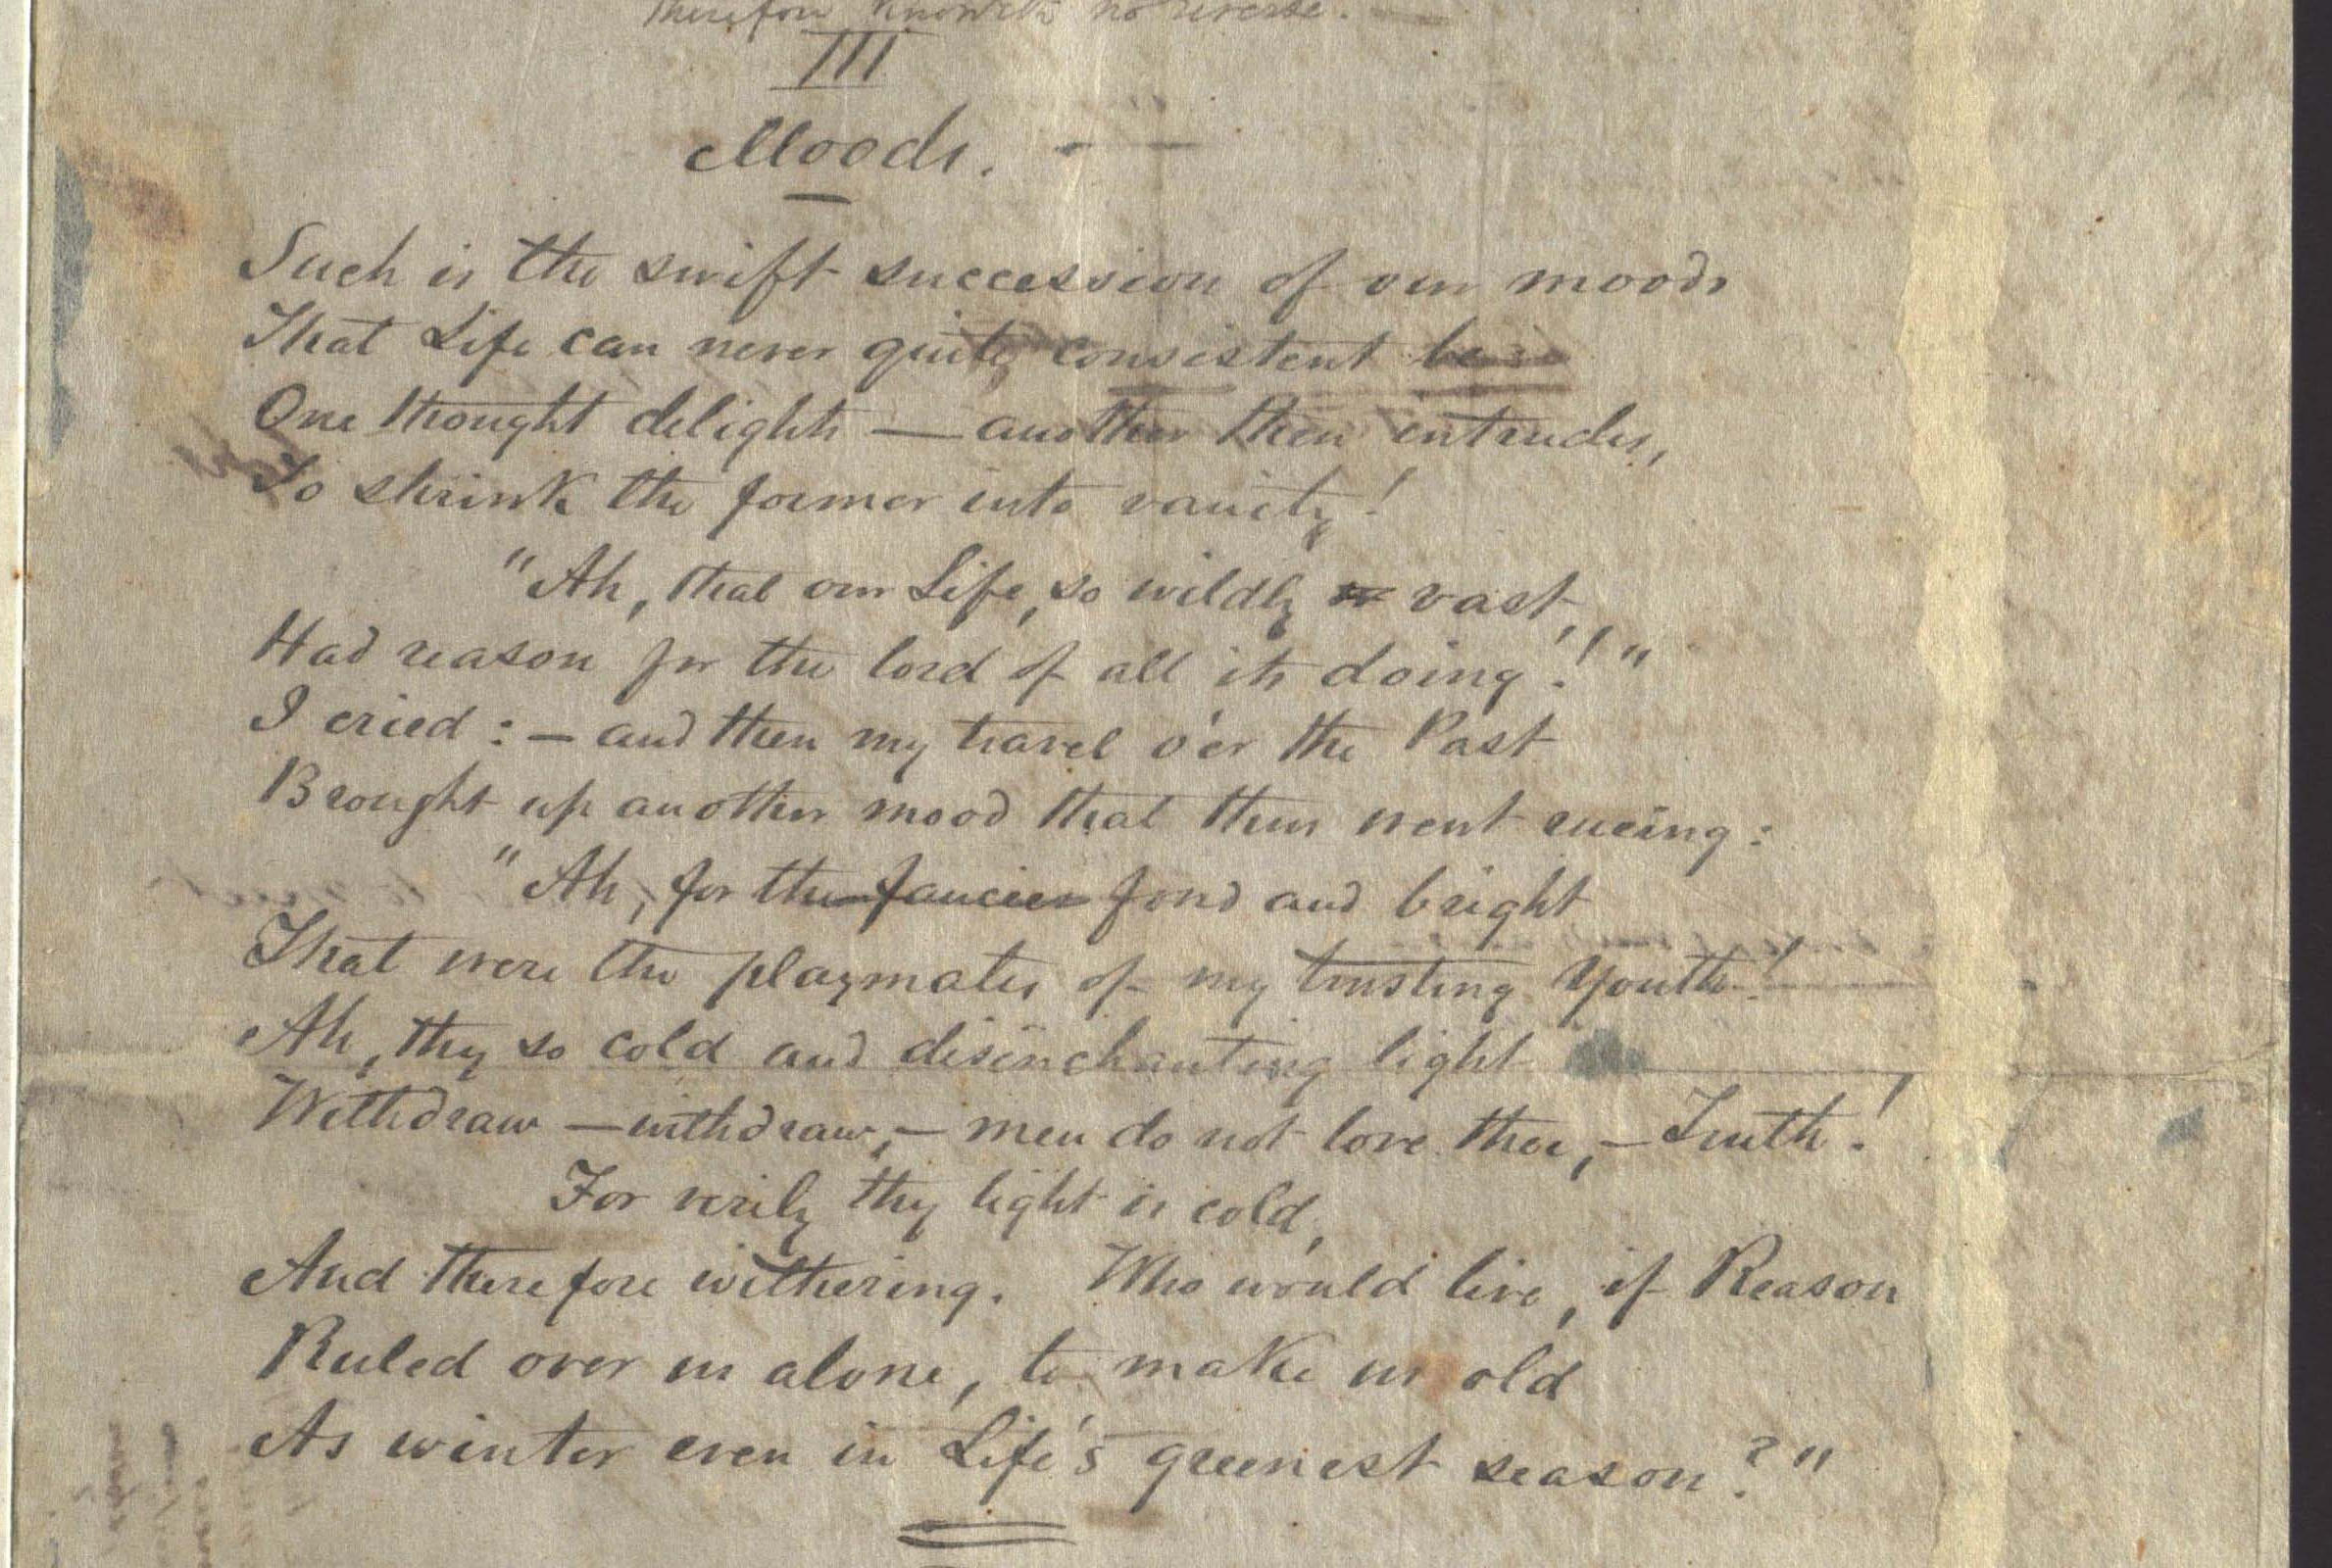 Therefore knoweth no reverse. —
III
Moods. —
Such is the swift succession of our moods
That Life can never quite consistent be
One thought delights — another then intrudes,
To shrink the former into vanity!
"Ah, that our Life, so wildly or vast,
Had reason for the lord of all its doing!"
I cried: — and then my travel o'er the Past
Brought up another mood that thus went rueing:
"Ah, for the fancies fond and bright
That were the playmates of my trusting Youth!
Ah, thy so cold and disenchanting light
Withdraw — withdraw, — men do not love thee, — Truth!
For verily thy light is cold,
And therefore withering. Who would live, if Reason
Ruled over us alone, to make us old
As winter even in Life's greenest season?"